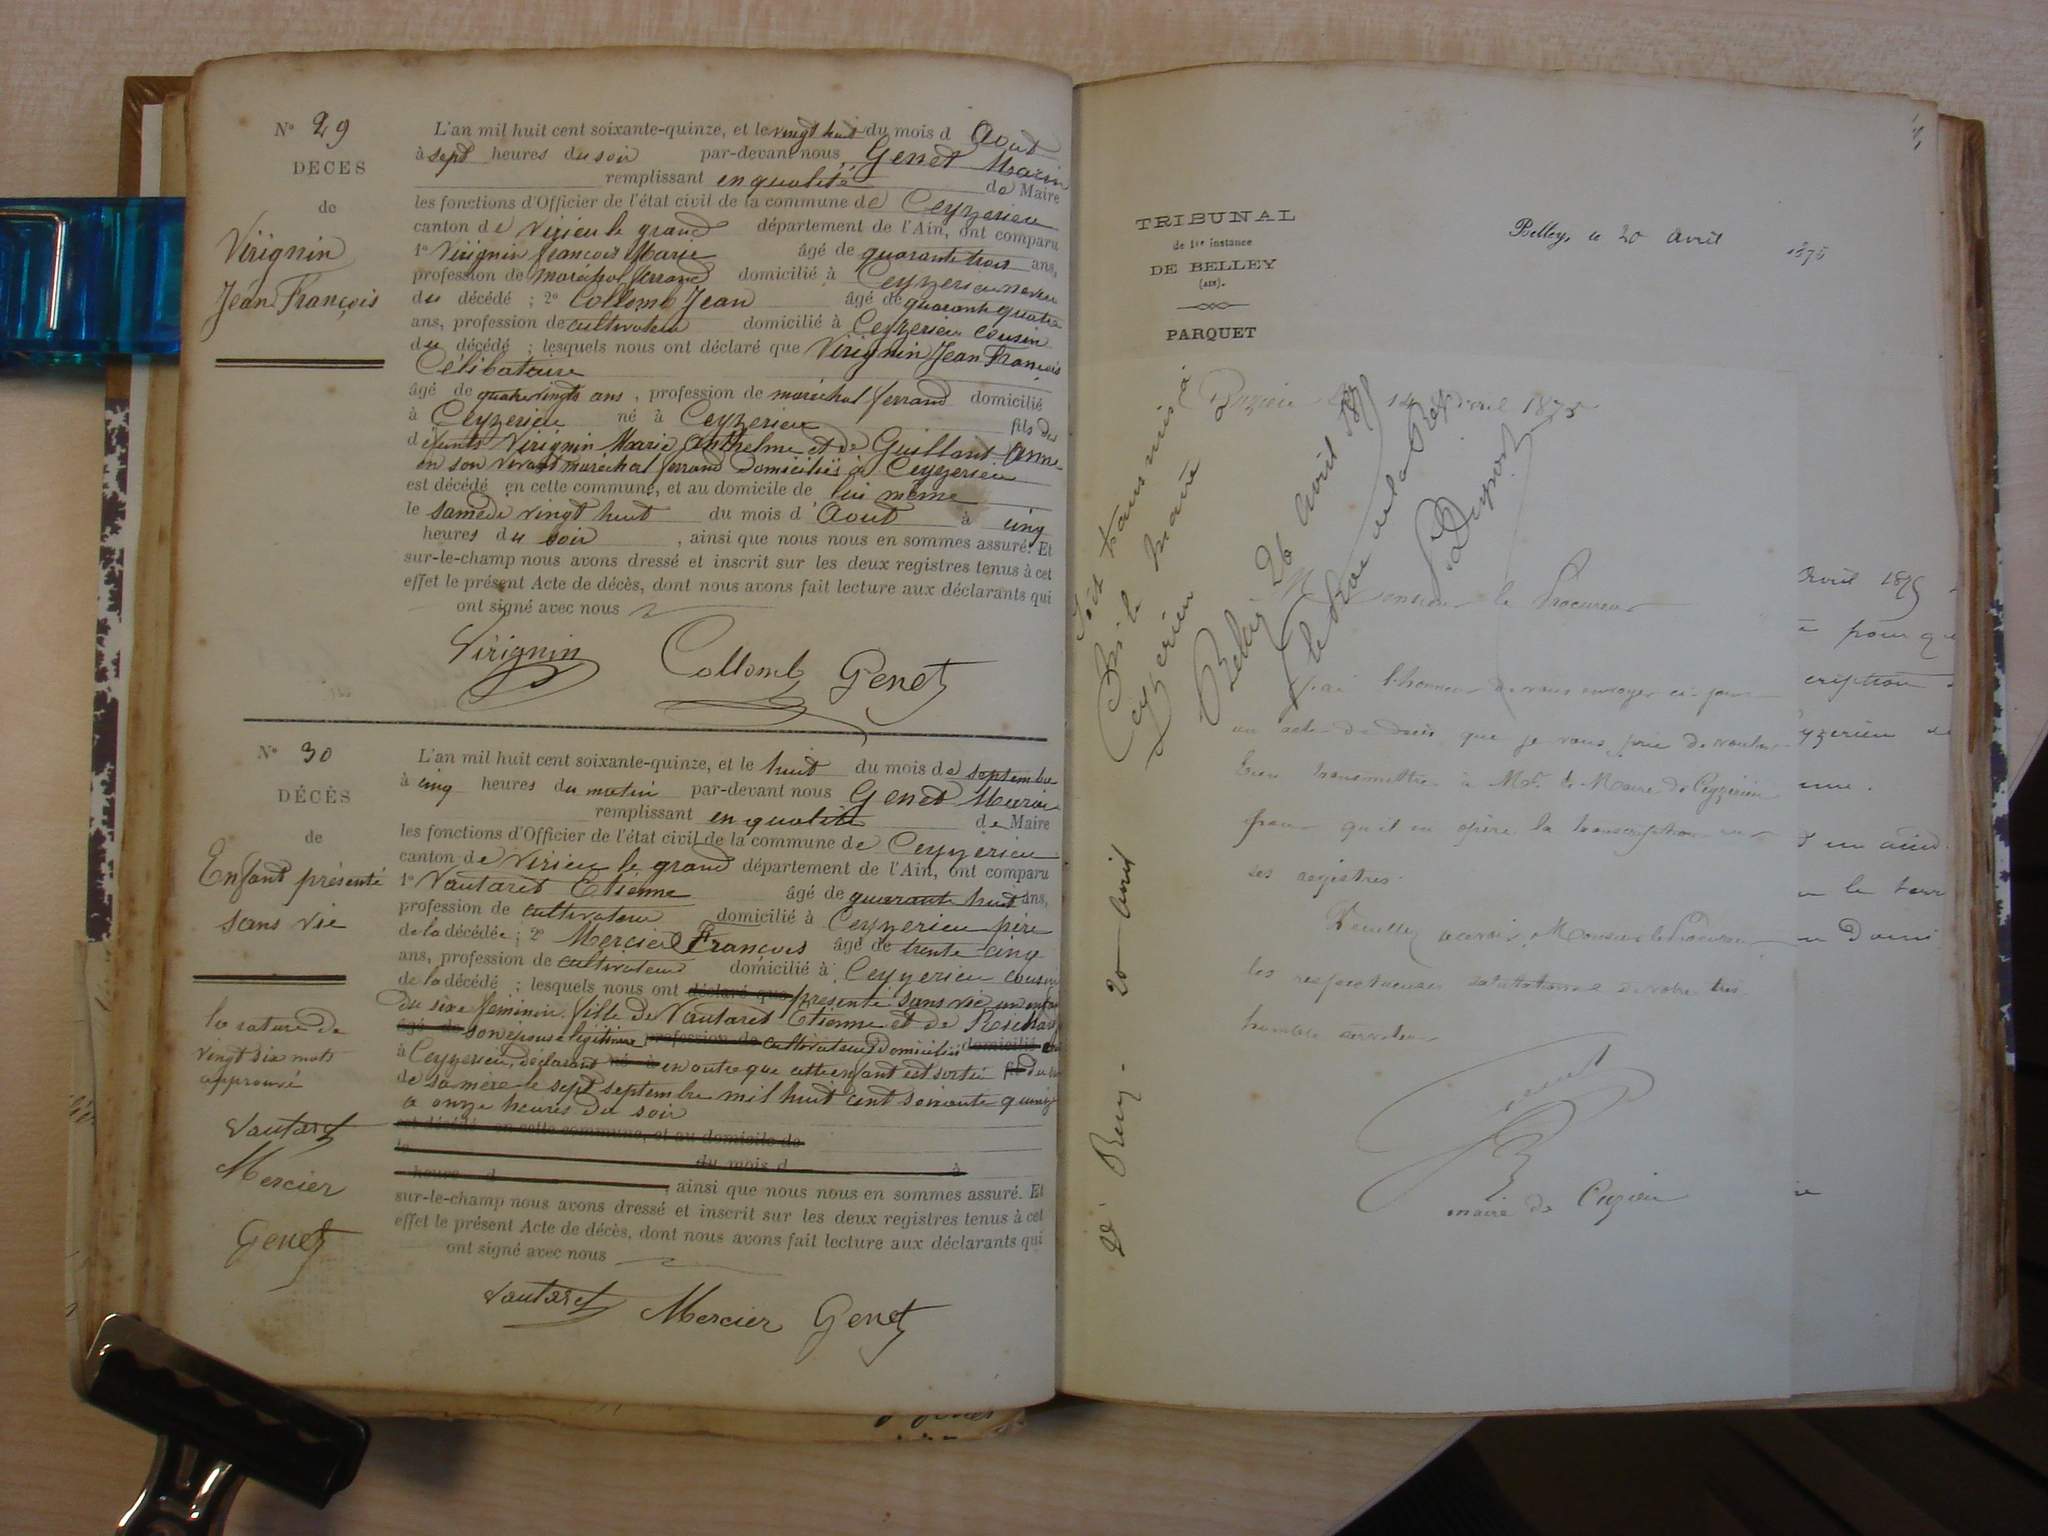 N° 29
DECES
de
Virignin
Jean François
L'an mil huit cent soixante-quinze, et le vingt huit du mois d Aout
à sept heures du soir par-devant nous Genet Marin
remplissant en qualité de Maire
les fonctions d'Officier de l'état civil de la commune de Ceyzerieu
canton de Virieu le grand département de l'Ain, ont comparu
1° Virignin François Marie âgé de quarante trois ans,
profession de maréchal ferrand domicilié à Ceyzerieu neveu
du décédé ; 2° Collomb Jean âgé de quarante quatre
ans, profession de cultivateur domicilié à Ceyzerieu cousin
du décédé ; lesquels nous ont déclaré que Virignin Jean François
Célibataire
âgé de quatrevingts ans, profession de maréchal ferrand domicilié
à Ceyzerieu né à Ceyzerieu fils des
défunts Virignin Marie Anthelme et de Guillant Anne
en son vivant marechal ferrand domiciliés à Ceyzerieu
est décédé en cette commune, et au domicile de lui même
le samedi vingt huit du mois d'Aout à cinq
heures du soir, ainsi que nous nous en sommes assuré. Et
sur-le-champ nous avons dressé et inscrit sur les deux registres tenus à cet
effet le présent Acte de décès, dont nous avons fait lecture aux déclarants qui
ont signé avec nous
Virignin Collomb Genet
N° 30
DÉCÈS
de
Enfant présenté
sans vie
la rature de
vingt six mots
approuvé
Vautaret
Mercier
Genet
L'an mil huit cent soixante-quinze, et le huit du mois de septembre
à cinq heures du matin par-devant nous Genet Marin
remplissant en qualité de Maire
les fonctions d'Officier de l'état civil de la commune de Ceyzerieu
canton de Virieu le grand département de l'Ain, ont comparu
1° Vautaret Etienne âgé de quarante huit ans,
profession de cultivateur domicilié à Ceyzerieu père
de la décédée ; 2° Mercier François âgé de trente cinq
ans, profession de cultivateur domicilié à Ceyzerieu cousin
de la décédé ; lesquels nous ont déclaré que présenté sans vie un enfant
du sexe féminin fille de Vautaret Etienne et de
âgé de son épouse légitime profession de cultivateurs domiciliés domicilié
à Ceyzerieu, déclarant né à en outre que cette enfant est sortie fils du
de sa mère le sept septembre mil huit cent soixante quinze
a onze heures du soir
est décédé en cette commune, et au domicile de
le du mois d à
heure d, ainsi que nous nous en sommes assuré. Et
sur-le-champ nous avons dressé et inscrit sur les deux registres tenus à cet
effet le présent Acte de décès, dont nous avons fait lecture aux déclarants qui
ont signé avec nous
Vautaret Mercier Genet
TRIBUNAL
de 1re instance
DE BELLEY
(AIN).
PARQUET
Belley, le 20 Avril 1875
14 avril 1875
Soit transmis à
le maire
Ceyzerieu
Belley 20 Avril 1875
le Proc de la Rép
Monsieur le Procureur
J'ai l'honneur de vous envoyer ce jour
un acte de décès que je vous prie de vouloir
bien transmettre à Mr le Maire de Ceyzerieu
pour qu'il en opère la transcription sur
ses registres.
Veuillez agréer, Monsieur le Procureur
les respectueuses salutations de votre très
humble serviteur
maire de Cuzieu
20 avril
avril 1875
pour qu
cription
yzerieu